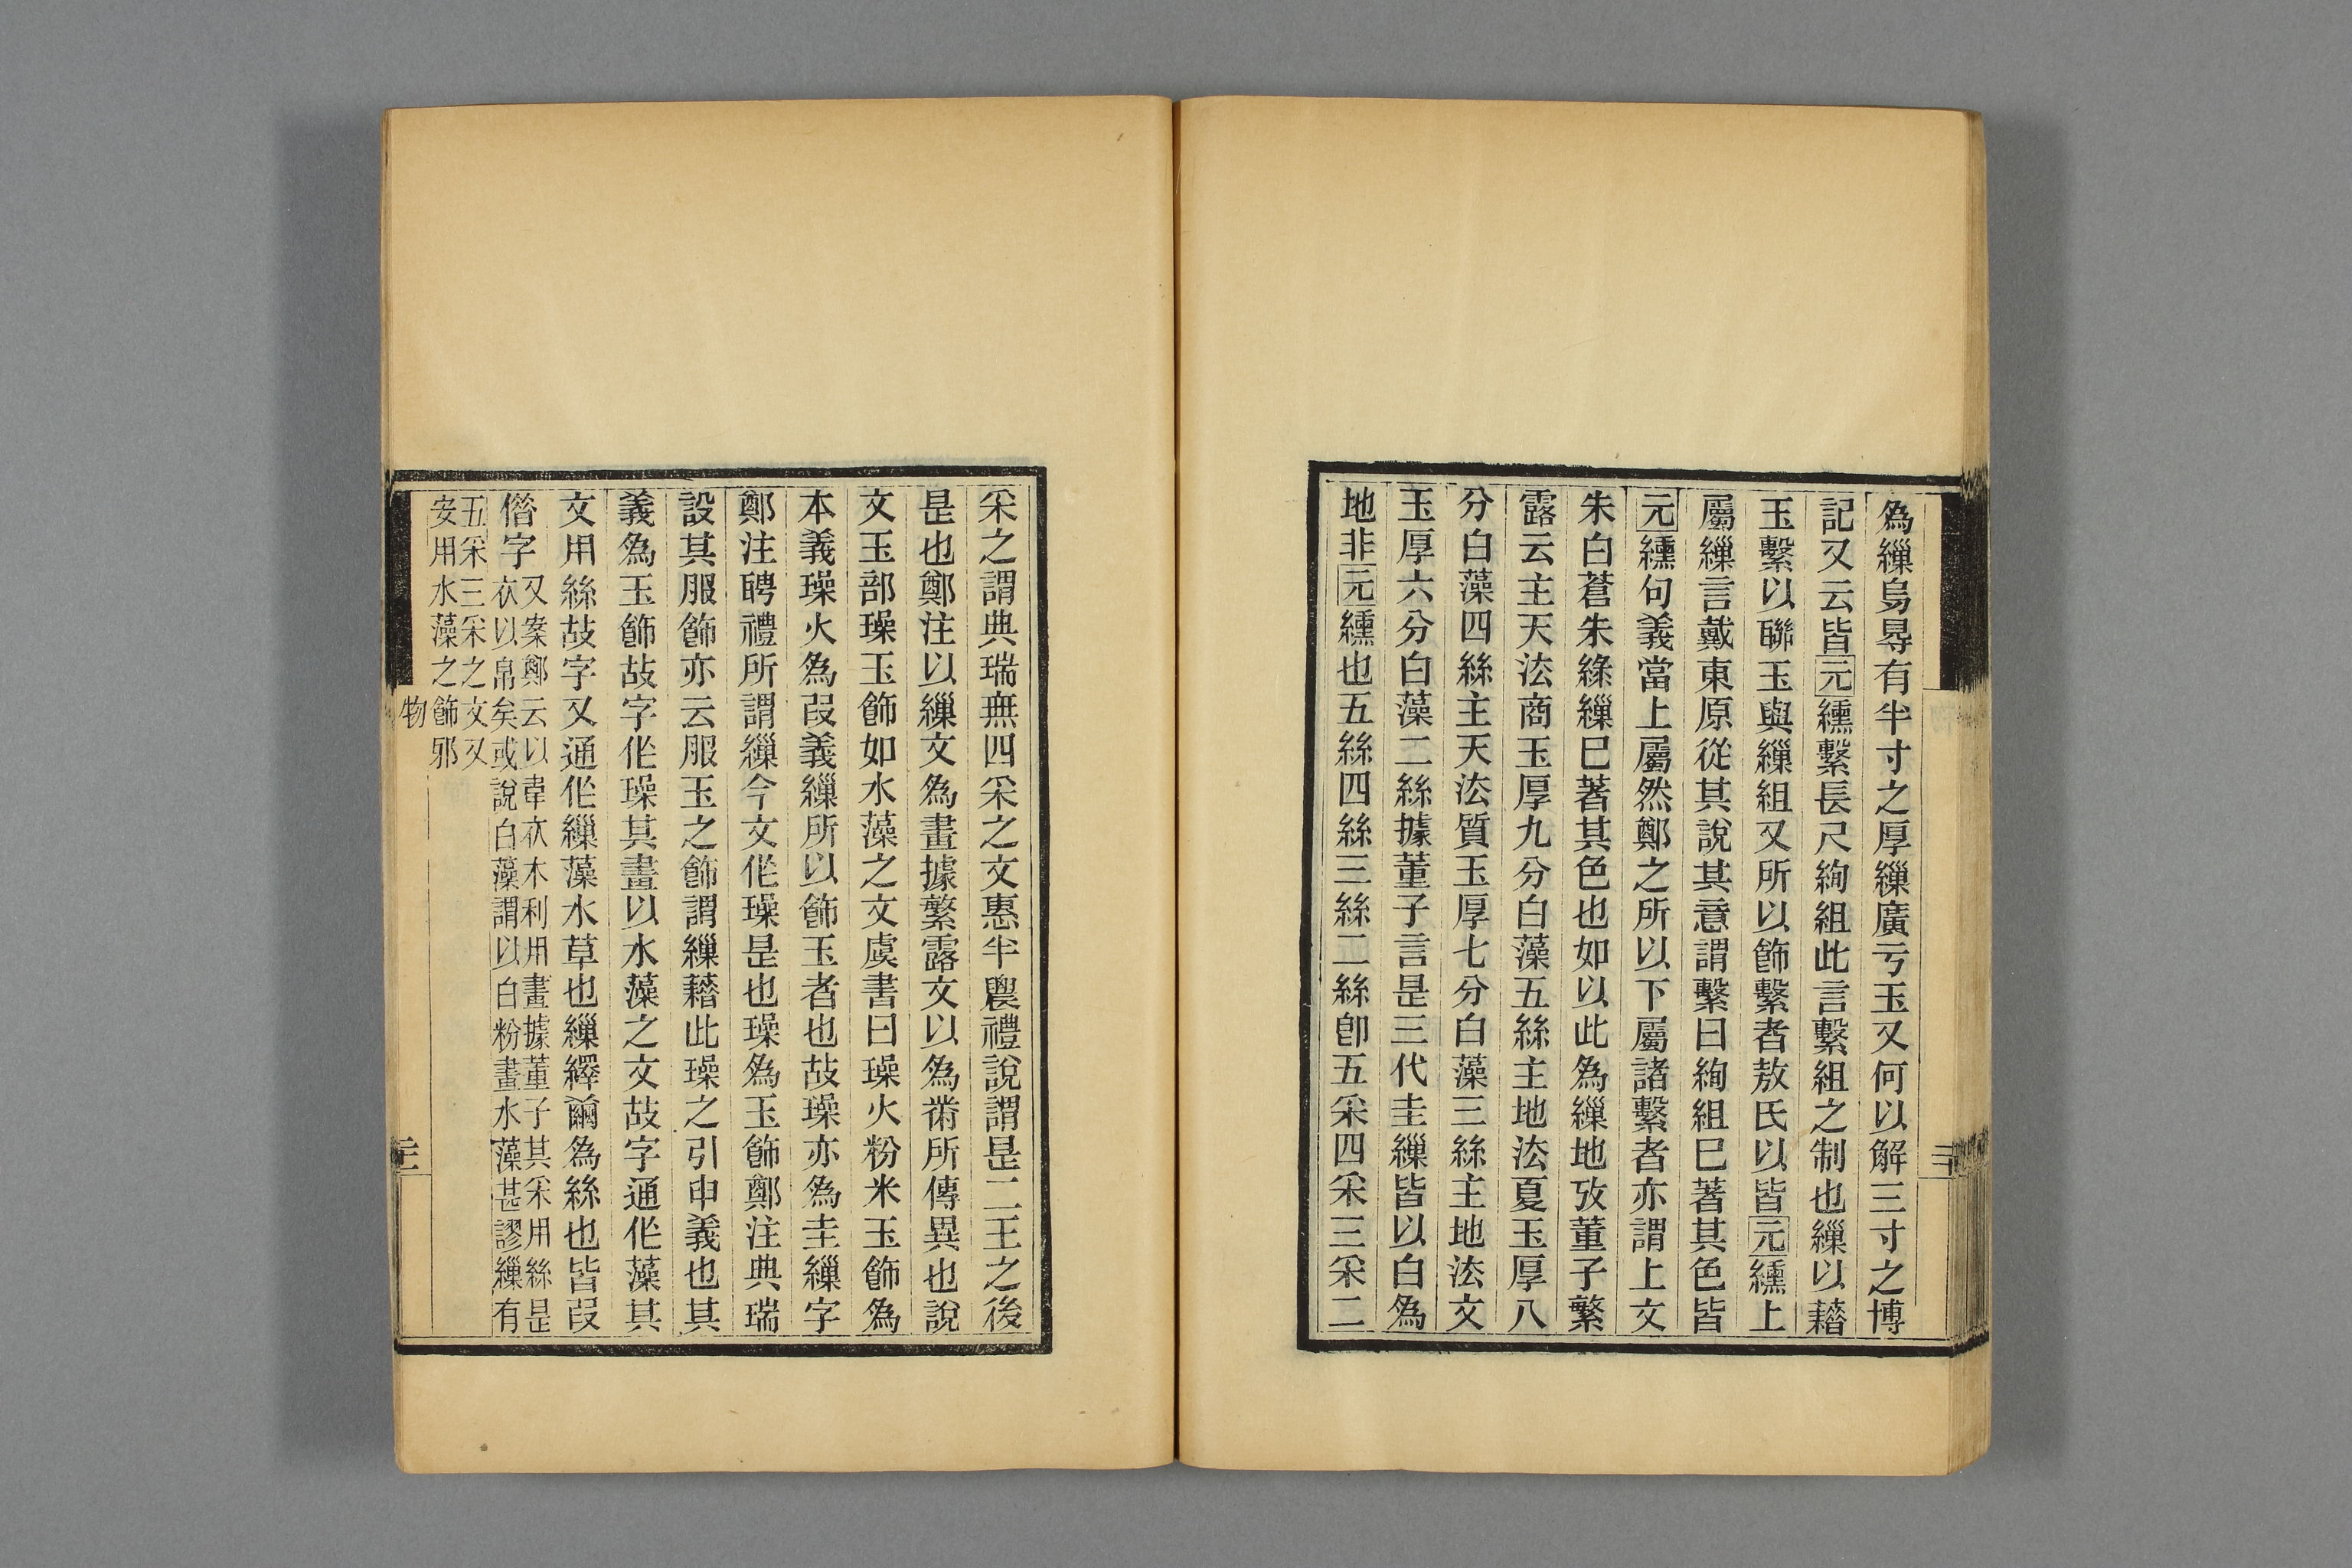 為繅烏㝵有半寸之厚繅廣亏玉又何以解三寸之博
記又云皆元纁繫長尺絢組此言繫組之制也繅以藉
玉繫以聯玉與繅組又所以飾繫者敖氏以皆元纁上
屬繅言戴東原從其說其意謂繫曰絢組巳著其色皆
元纁句義當上屬然鄭之所以下屬諸繫者亦謂上文
朱白蒼朱綠繅巳著其色也如以此為繅地攷董子繁
露云主天法商玉厚九分白藻五絲主地法夏玉厚八
分白藻四絲主天法質玉厚七分白藻三絲主地法文
玉厚六分白藻二絲據董子言是三代圭繅皆以白為
地非元纁也五絲四絲三絲二絲卽五采四采三采二
采之謂典瑞無四采之文惠半農禮說謂是二王之後
是也鄭注以繅文為畫據繁露文以為黹所傳異也說
文玉部璪玉飾如水藻之文虞書曰璪火粉米玉飾為
本義璪火為叚義繅所以飾玉者也故璪亦為圭繅字
鄭注聘禮所謂繅今文作璪是也璪為玉飾鄭注典瑞
設其服飾亦云服玉之飾謂繅藉此璪之引申義也其
義為玉飾故字作璪其畫以水藻之文故字通作藻其
文用絲故字又通作繅藻水草也繅繹繭為絲也皆叚
偺字
又案鄭云以韋衣木利用畫據董子其采用絲是
衣以帛矣或說白藻謂以白粉畫水藻甚謬繅有
五采三采之文又
安用水藻之飾邪
物